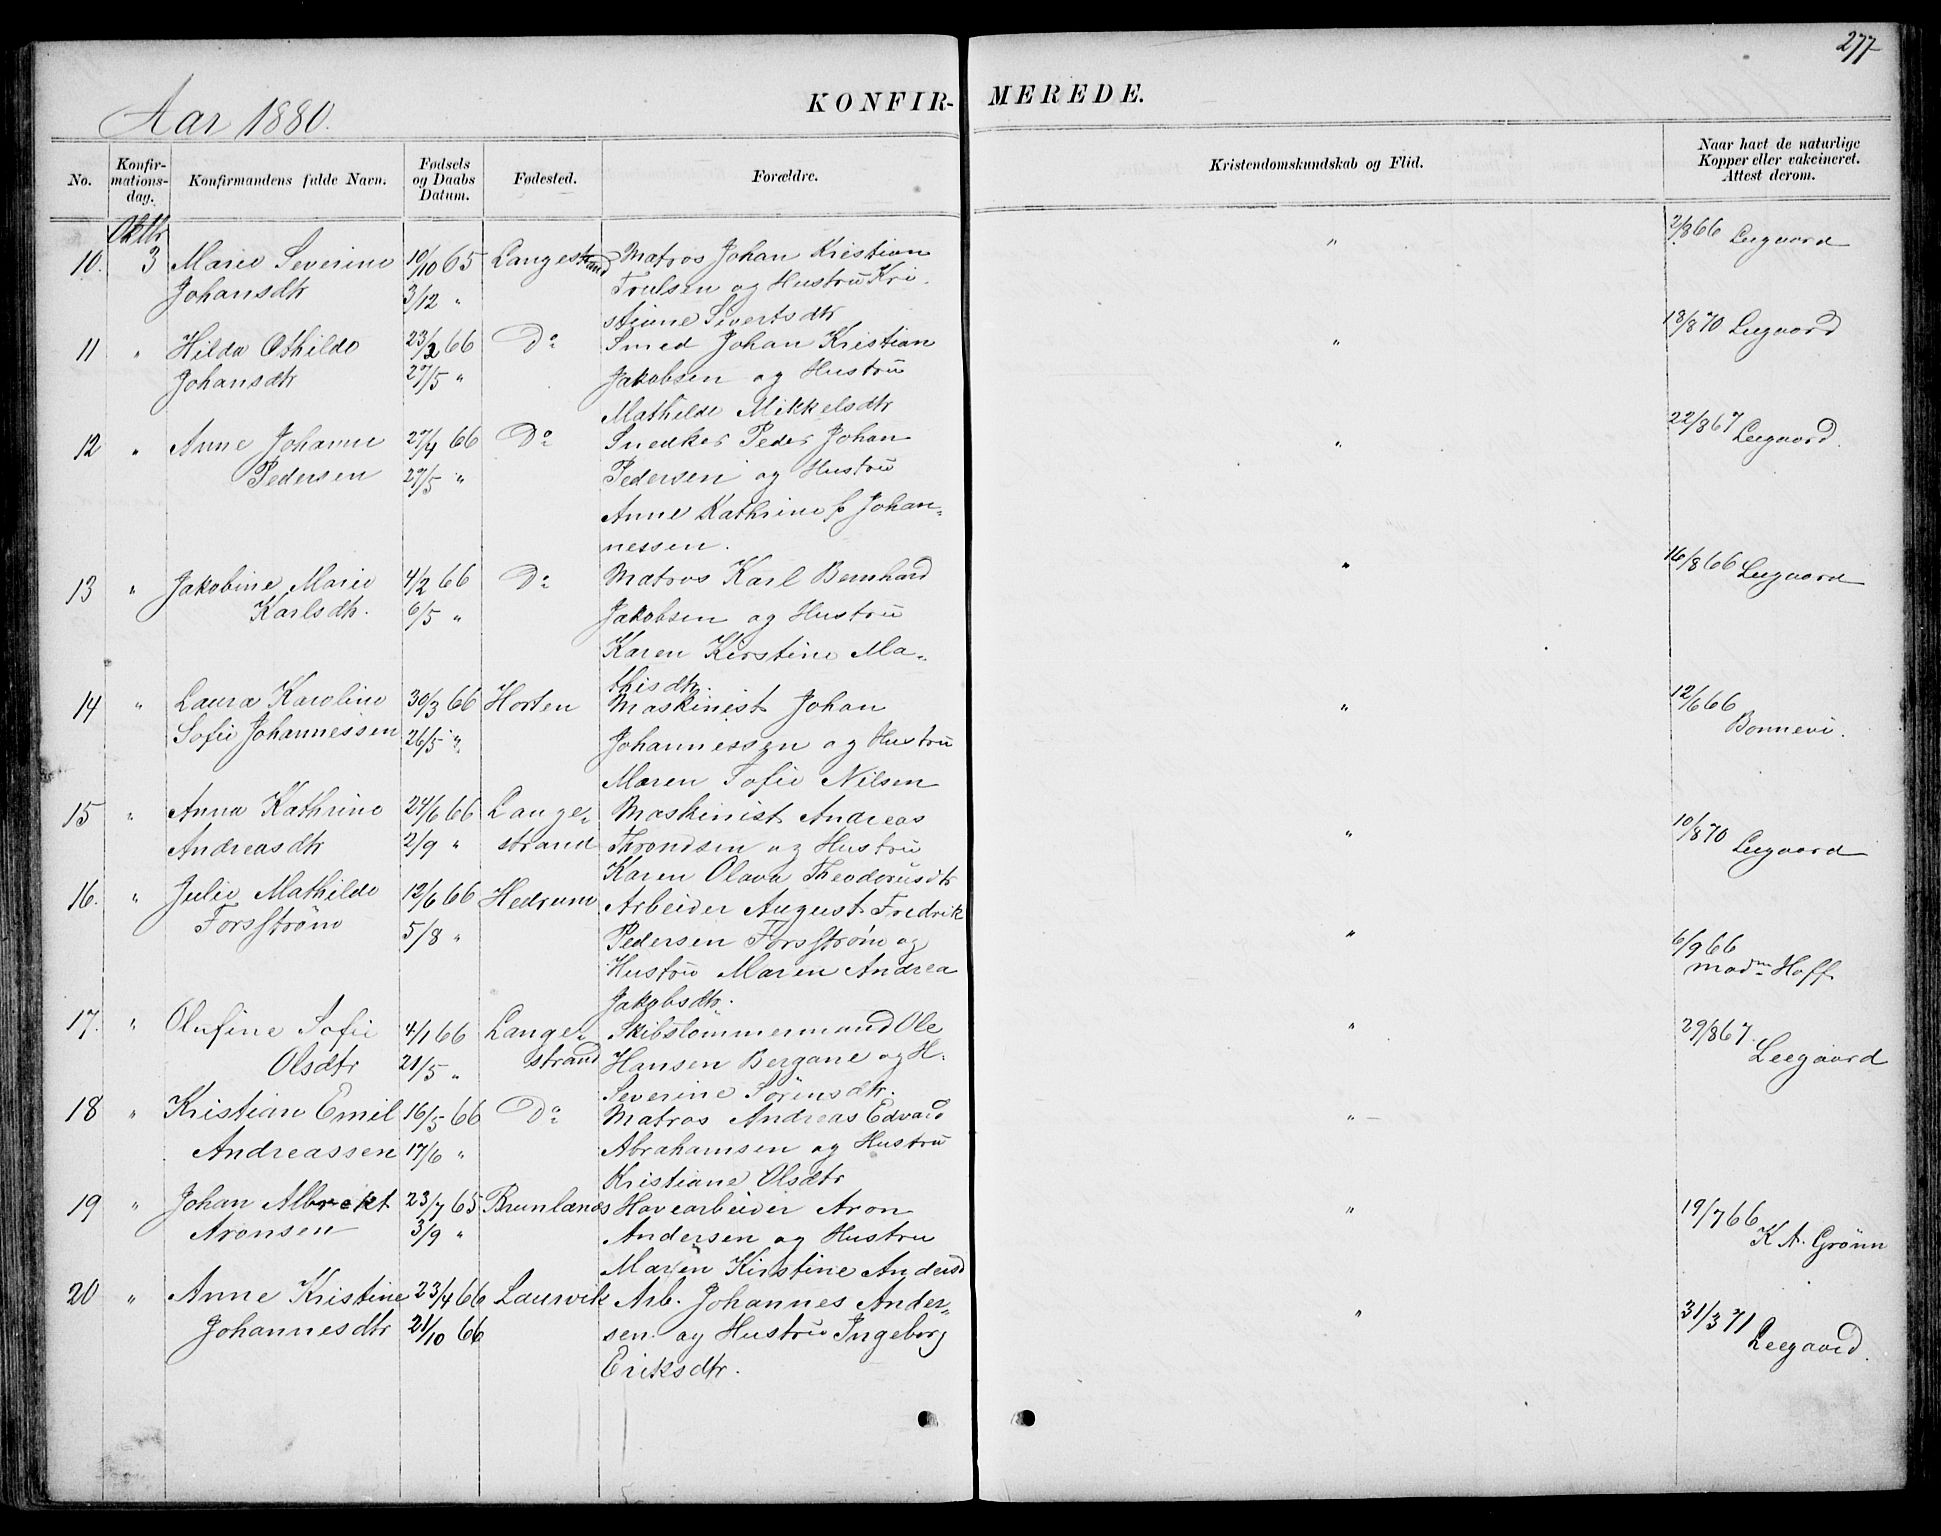 277
Aar 1880.
KONFIR- MEREDE.
No. Konfir-mations-dag. Konfirmandens fulde Navn. Fødsels og Daabs Datum. Fødested. Forældre. Kristendomskundskab og Flid. Naar havt de naturlige Kopper eller vakcineret. Attest derom.
Oktbr
10. 3 Marie Severine 10/10 65 Langestrand Matros Johan Kristian " 2/8 66 Leegaard
Johansdtr 3/12 " Trulsen og Hustru Kri-
stiane Sivertsdtr
11 " Hilda Othilde 23/2 66 Do Smed Johan Kristian " 18/8 70 Leegaard
Johansdtr 27/5 " Jakobsen og Hustru
Mathilde Mikkelsdtr
12 " Anne Johanne 27/4 66 Do Snedker Peder Johan " 22/8 67 Leegaard.
Pedersen 27/5 " Pedersen og Hustru
Anne Kathrine f. Johan-
nessen.
13 " Jakobine Marie 4/2 66 Do Matros Karl Bernhard " 16/8 66 Leegaard
Karlsdtr. 6/5 " Jakobsen og Hustru
Karen Kirstine Ma-
thisdtr.
14 " Laura Karoline 30/3 66 Horten Maskinist Johan " 12/6 66
Sofie Johannessen 26/5 " Johannessen og Hustru Bonnevi.
Maren Sofie Nilsen
15 " Anna Kathrine 24/6 66 Lange- Maskinist Andreas " 10/8 70 Leegaard
Andreasdtr 2/9 " strand Throndsen og Hustru
Karen Olava Theodorusdtr
16. " Julie Mathilde 12/6 66 Hedrum Arbeider August Fredrik "
Forsstrøm 5/8 " Pedersen Forsstrøm og 6/9 66
Hustru Maren Andrea madm Hoff
Jakobsdtr.
17. " Olufine Sofie 4/1 66 Lange- Skibstømmermand Ole " 29/8 67.
Olsdtr 21/5 " strand Hansen Bergane og H. Leegaard
Severine Sörensdtr.
18 " Kristian Emil 16/5 66 Do Matros Andreas Edvard "
Andreassen 17/6 " Abrahamsen og Hustru
Kristiane Olsdtr
19 " Johan Albrekt 23/7 65 Brunlanæs Havearbeider Aron " 19/7 66
Aronsen 3/9 " Andersen og Hustru K A. Grönn
Maren Kirstine Andersd
20 " Anne Kristine 23/4 66 Laurvik Arb. Johannes Ander- " 31/3 71
Johannesdtr 21/10 66 sen og Hustru Ingeborg Leegaard.
Eriksdtr.